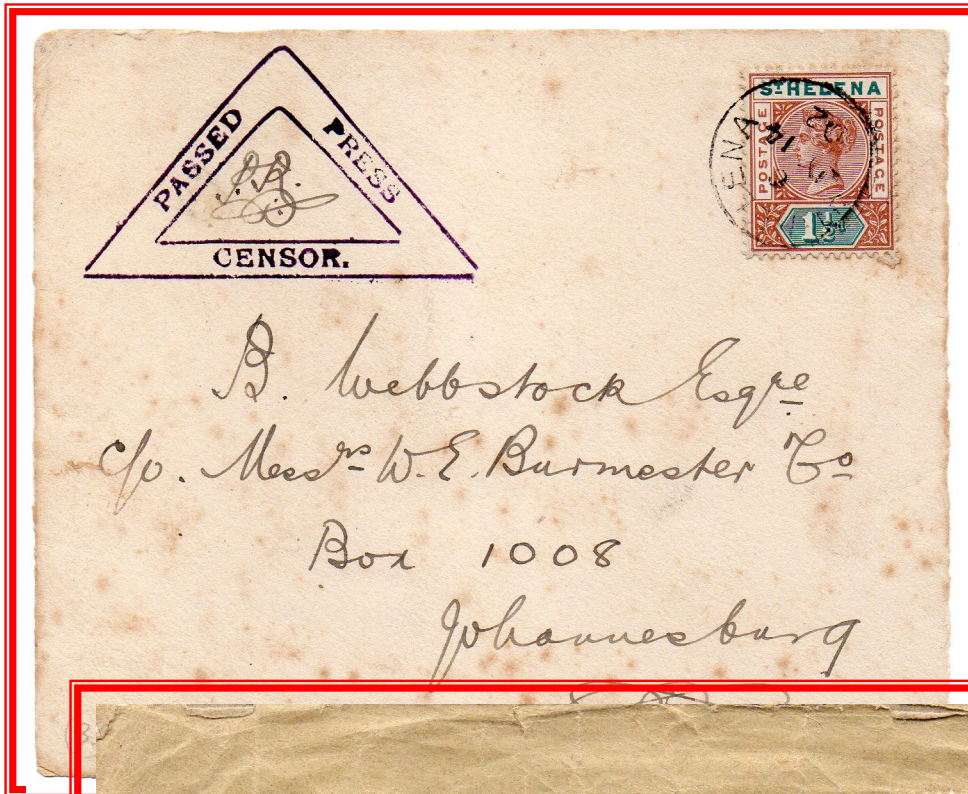 PASSED PRESS
CENSOR.
ST HELENA
POSTAGE POSTAGE
1½
14
02
B. Webbstock Esqre
c/o. Messrs W. E. Burmester Co
Box 1008
Johannesburg